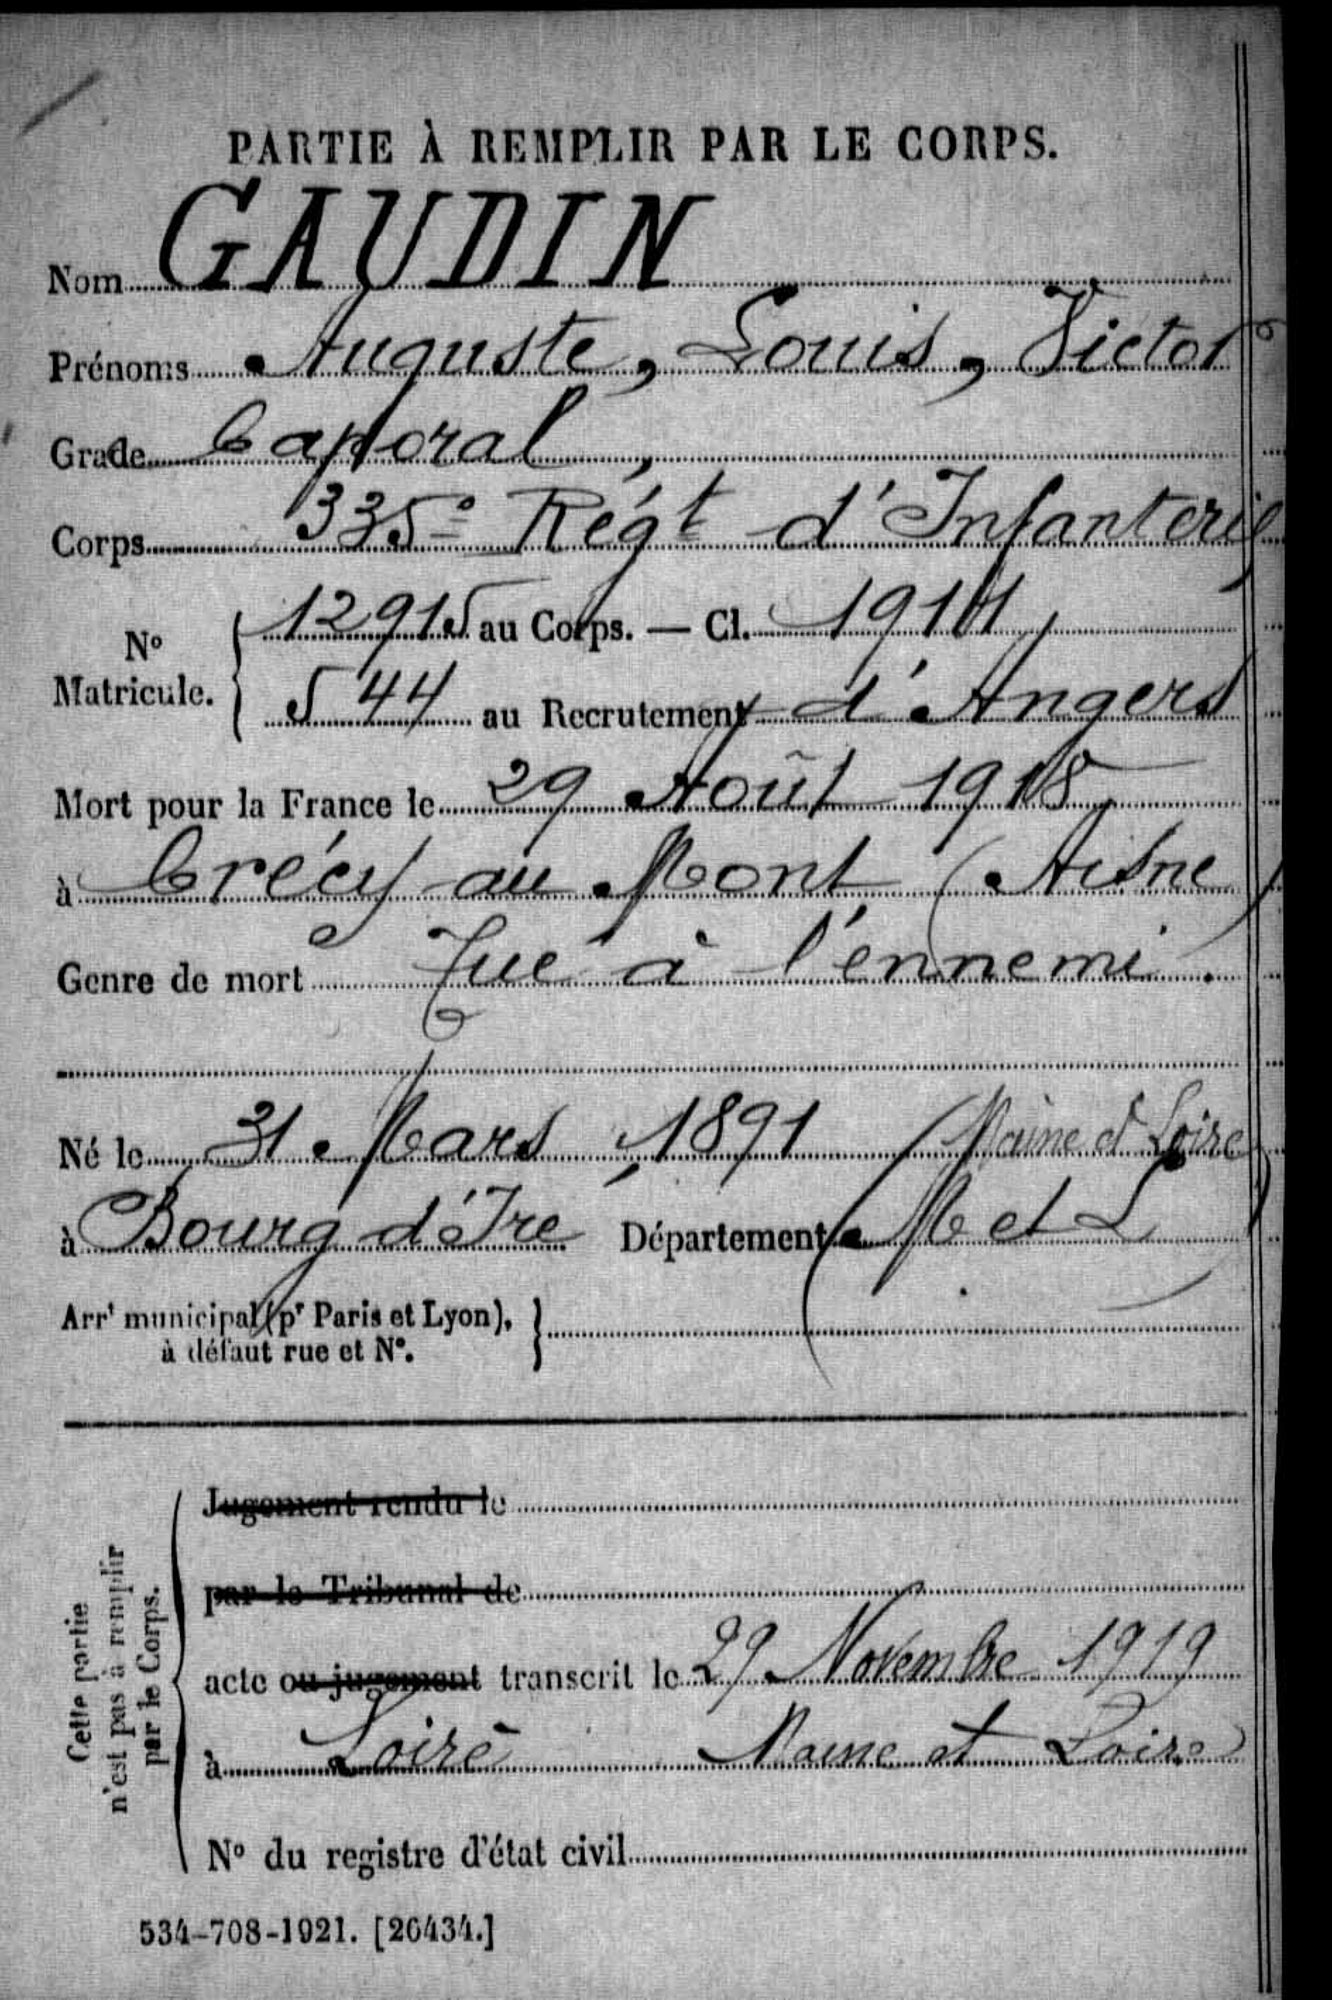 PARTIE À REMPLIR PAR LE CORPS.
Nom GAUDIN
Prénoms Auguste, Louis, Victor
Grade Caporal,
Corps 335e Régt d'Infanterie
No Matricule. 12915 au Corps. — Cl. 1911
544 au Recrutement d'Angers
Mort pour la France le 29 Août 1918
à Crécy au Mont (Aisne)
Genre de mort Tué à l'ennemi.
Né le 31 Mars, 1891 Maine et Loire
à Bourg d'Ire Département (M et L)
Arrt municipal (pr Paris et Lyon),
à défaut rue et No.
Cette partie
n'est pas à remplir
par le Corps.
Jugement rendu le
par le Tribunal de
acte ou jugement transcrit le 29 Novembre 1919
à Loiré Maine et Loire
No du registre d'état civil
534-708-1921. [26434.]